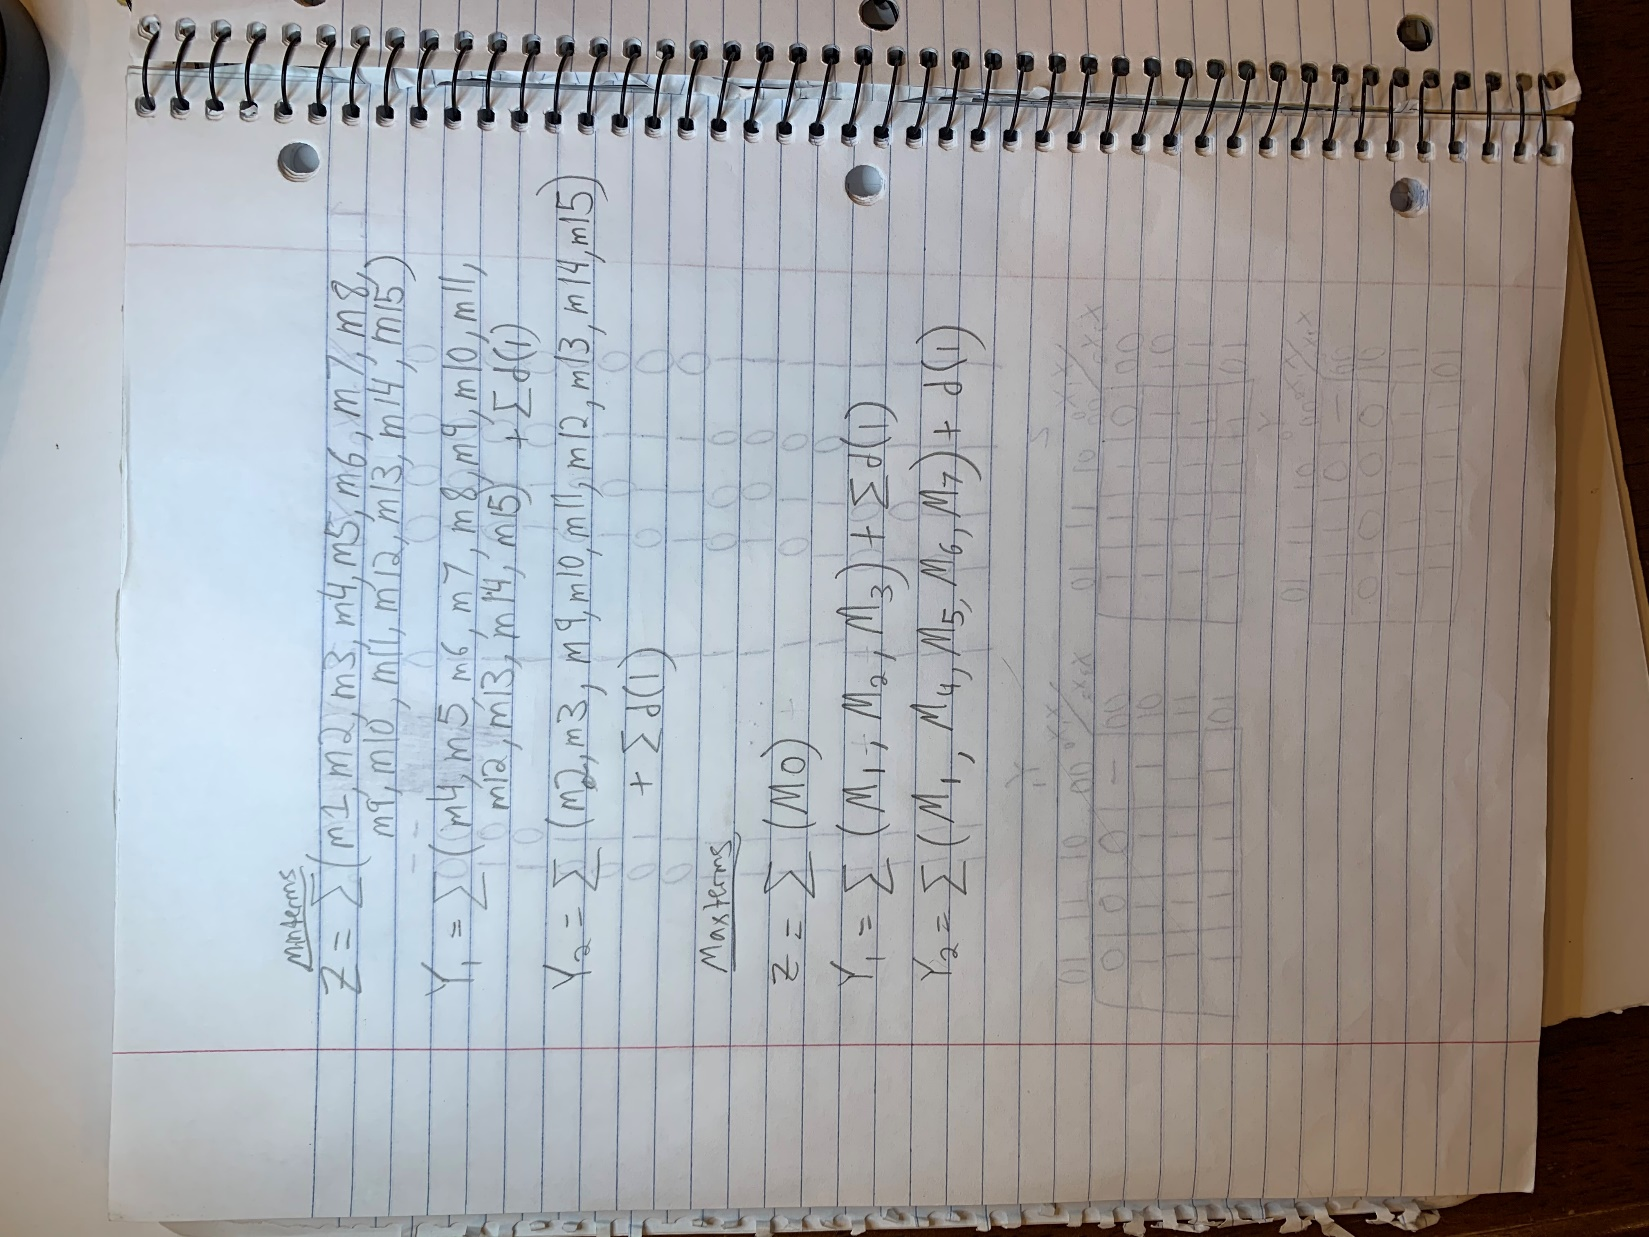 Minterms
Z = ∑(m1, m2, m3, m4, m5, m6, m7, m8,
m9, m10, m11, m12, m13, m14, m15)
Y1 = ∑(m4, m5, m6, m7, m8, m9, m10, m11,
m12, m13, m14, m15) + ∑d(1)
Y2 = ∑(m2, m3, m9, m10, m11, m12, m13, m14, m15)
+ ∑d(1)
Maxterms
Z = ∑(M0)
Y1 = ∑(M1, M2, M3) + ∑d(1)
Y2 = ∑(M1, M4, M5, M6, M7) + d(1)